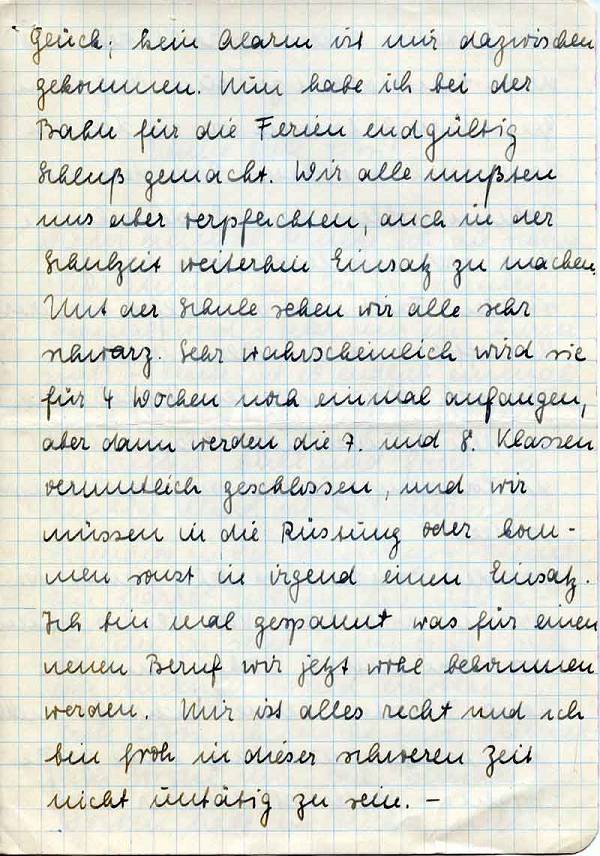 Glück; kein Alarm ist mir dazwischen
gekommen. Nun habe ich bei der
Bahn für die Ferien endgültig
Schluß gemacht. Wir alle mußten
uns aber verpflichten, auch in der
Schulzeit weiterhin Einsatz zu machen.
Mit der Schule sehen wir alle sehr
schwarz. Sehr wahrscheinlich wird sie
für 4 Wochen noch einmal anfangen,
aber dann werden die 7. und 8. Klassen
vermutlich geschlossen, und wir
müssen in die Rüstung oder kom-
men sonst in irgend einen Einsatz.
Ich bin mal gespannt was für einen
neuen Beruf wir jetzt wohl bekommen
werden. Mir ist alles recht und ich
bin froh in dieser schweren Zeit
nicht untätig zu sein. –